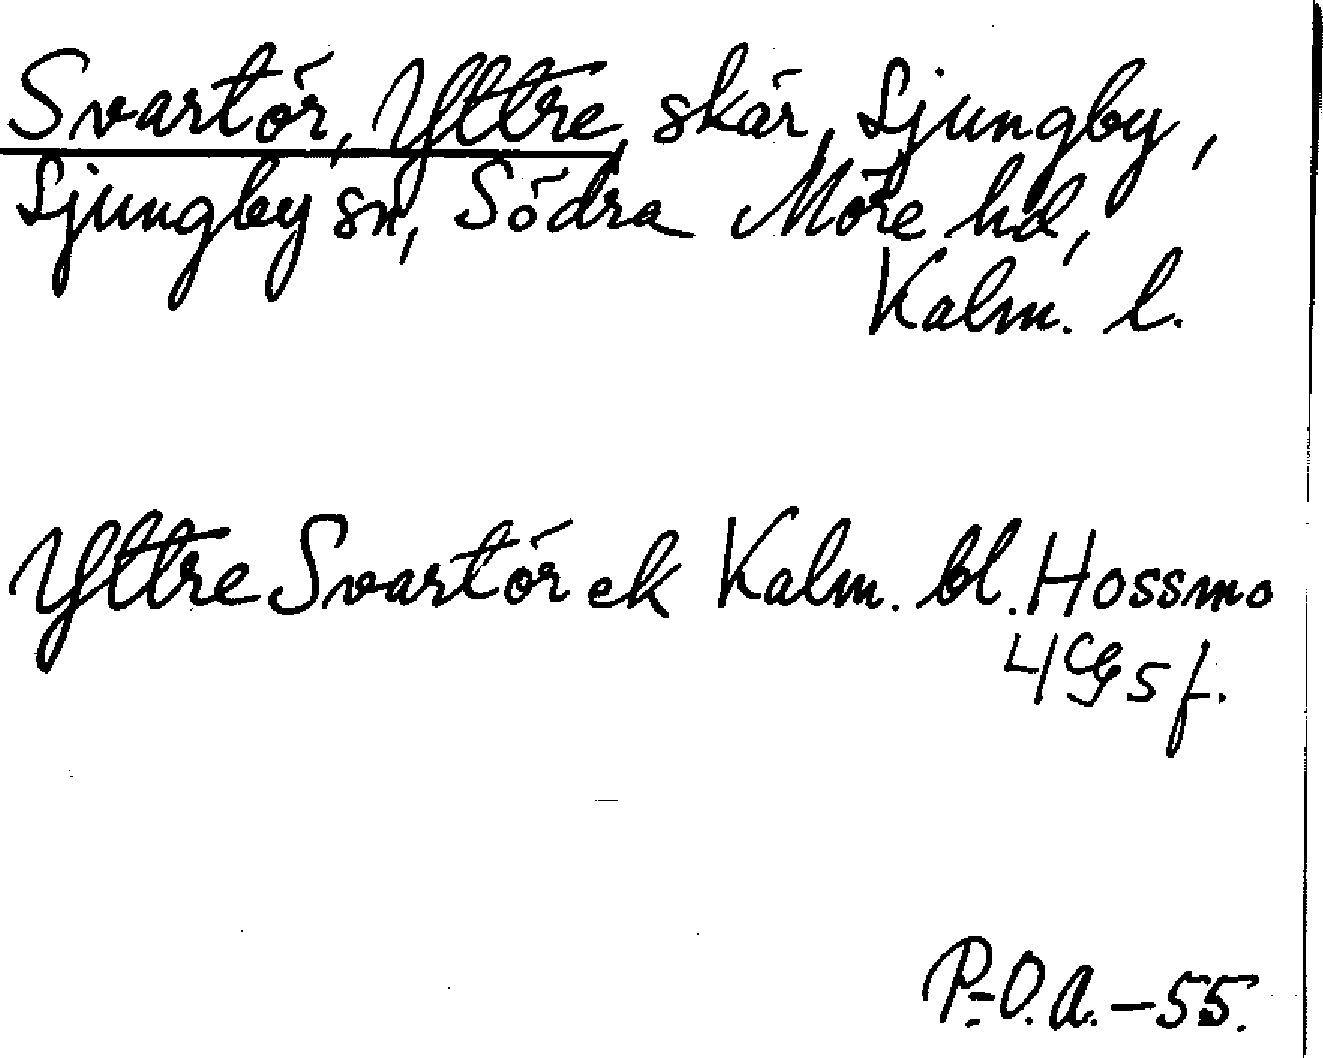 Svartör, Yttre, skär, Ljungby,
Ljungby sn, Södra Möre hd,
Kalm. l.
Yttre Svartör ek Kalm. bl. Hossmo
4G 5 f.
P.-O.A.-55.